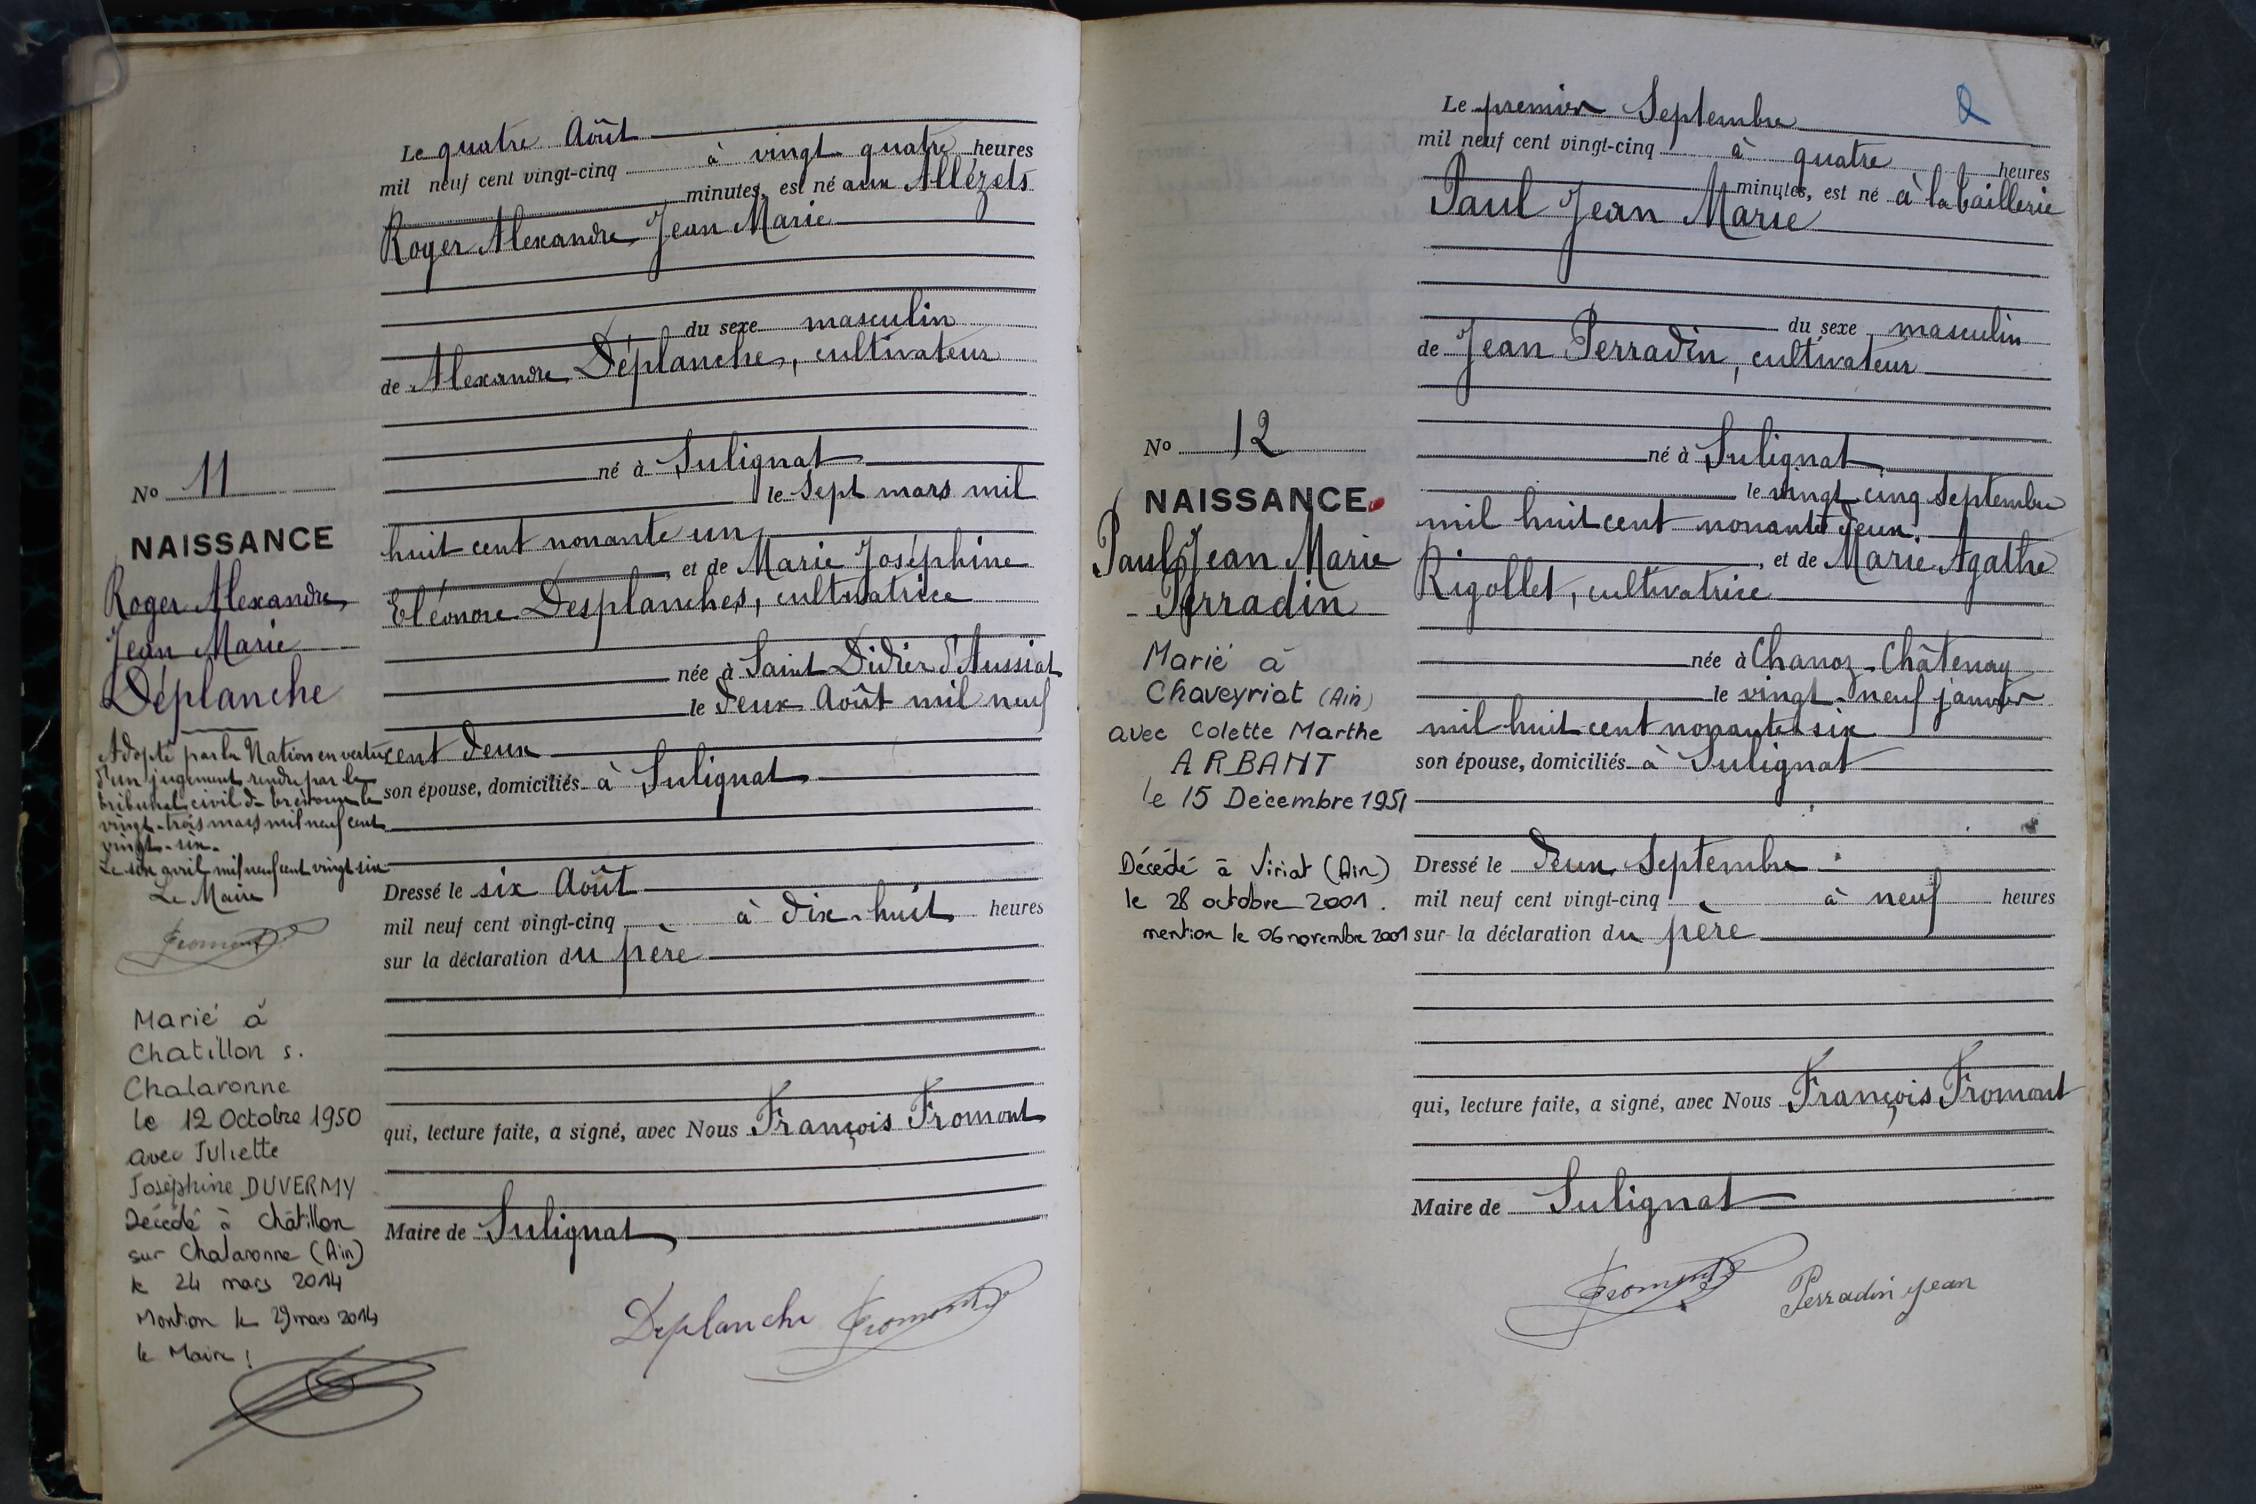 Le quatre Août
mil neuf cent vingt-cinq à vingt quatre heures
minutes, est né aux Allézets
Roger Alexandre Jean Marie
du sexe masculin
de Alexandre Déplanche, cultivateur
né à Sulignat
le sept mars mil
huit cent nonante un
, et de Marie Joséphine
Eléonore Desplanches, cultivatrice
née à Saint Didier d'Aussiat
le deux Août mil neuf
cent deux
son épouse, domiciliés à Sulignat
Dressé le six Août
mil neuf cent vingt-cinq à dix-huit heures
sur la déclaration du père
qui, lecture faite, a signé, avec Nous François Fromont
Maire de Sulignat
Deplanche Fromont
No 11
NAISSANCE
Roger Alexandre
Jean Marie
Déplanche
Adopté par la Nation en vertu
d'un jugement rendu par le
tribunal civil de Trévoux le
vingt-trois mars mil neuf cent
vingt-six.
Le six avril mil neuf cent vingt six
Le Maire
Fromont
Marié à
Chatillon s.
Chalaronne
le 12 Octobre 1950
avec Juliette
Joséphine DUVERMY
Décédé à Châtillon
sur Chalaronne (Ain)
le 24 mars 2014
Mention le 29 mars 2014
le Maire
Le premier Septembre
mil neuf cent vingt-cinq à quatre heures
minutes, est né à la baillerie
Paul Jean Marie
du sexe masculin
de Jean Perradin, cultivateur
né à Sulignat
le vingt cinq Septembre
mil huit cent nonante deux
, et de Marie Agathe
Rigollet, cultivatrice
née à Chanoz-Châtenay
le vingt-neuf janvier
mil huit cent nonante six
son épouse, domiciliés à Sulignat
Dressé le deux Septembre
mil neuf cent vingt-cinq à neuf heures
sur la déclaration du père
qui, lecture faite, a signé, avec Nous François Fromont
Maire de Sulignat
Fromont Perradin Jean
No 12
NAISSANCE
Paul Jean Marie
Perradin
Marié à
Chaveyriat (Ain)
avec Colette Marthe
ARBANT
le 15 Décembre 1951
Décédé à Viriat (Ain)
le 28 octobre 2001.
mention le 06 novembre 2001